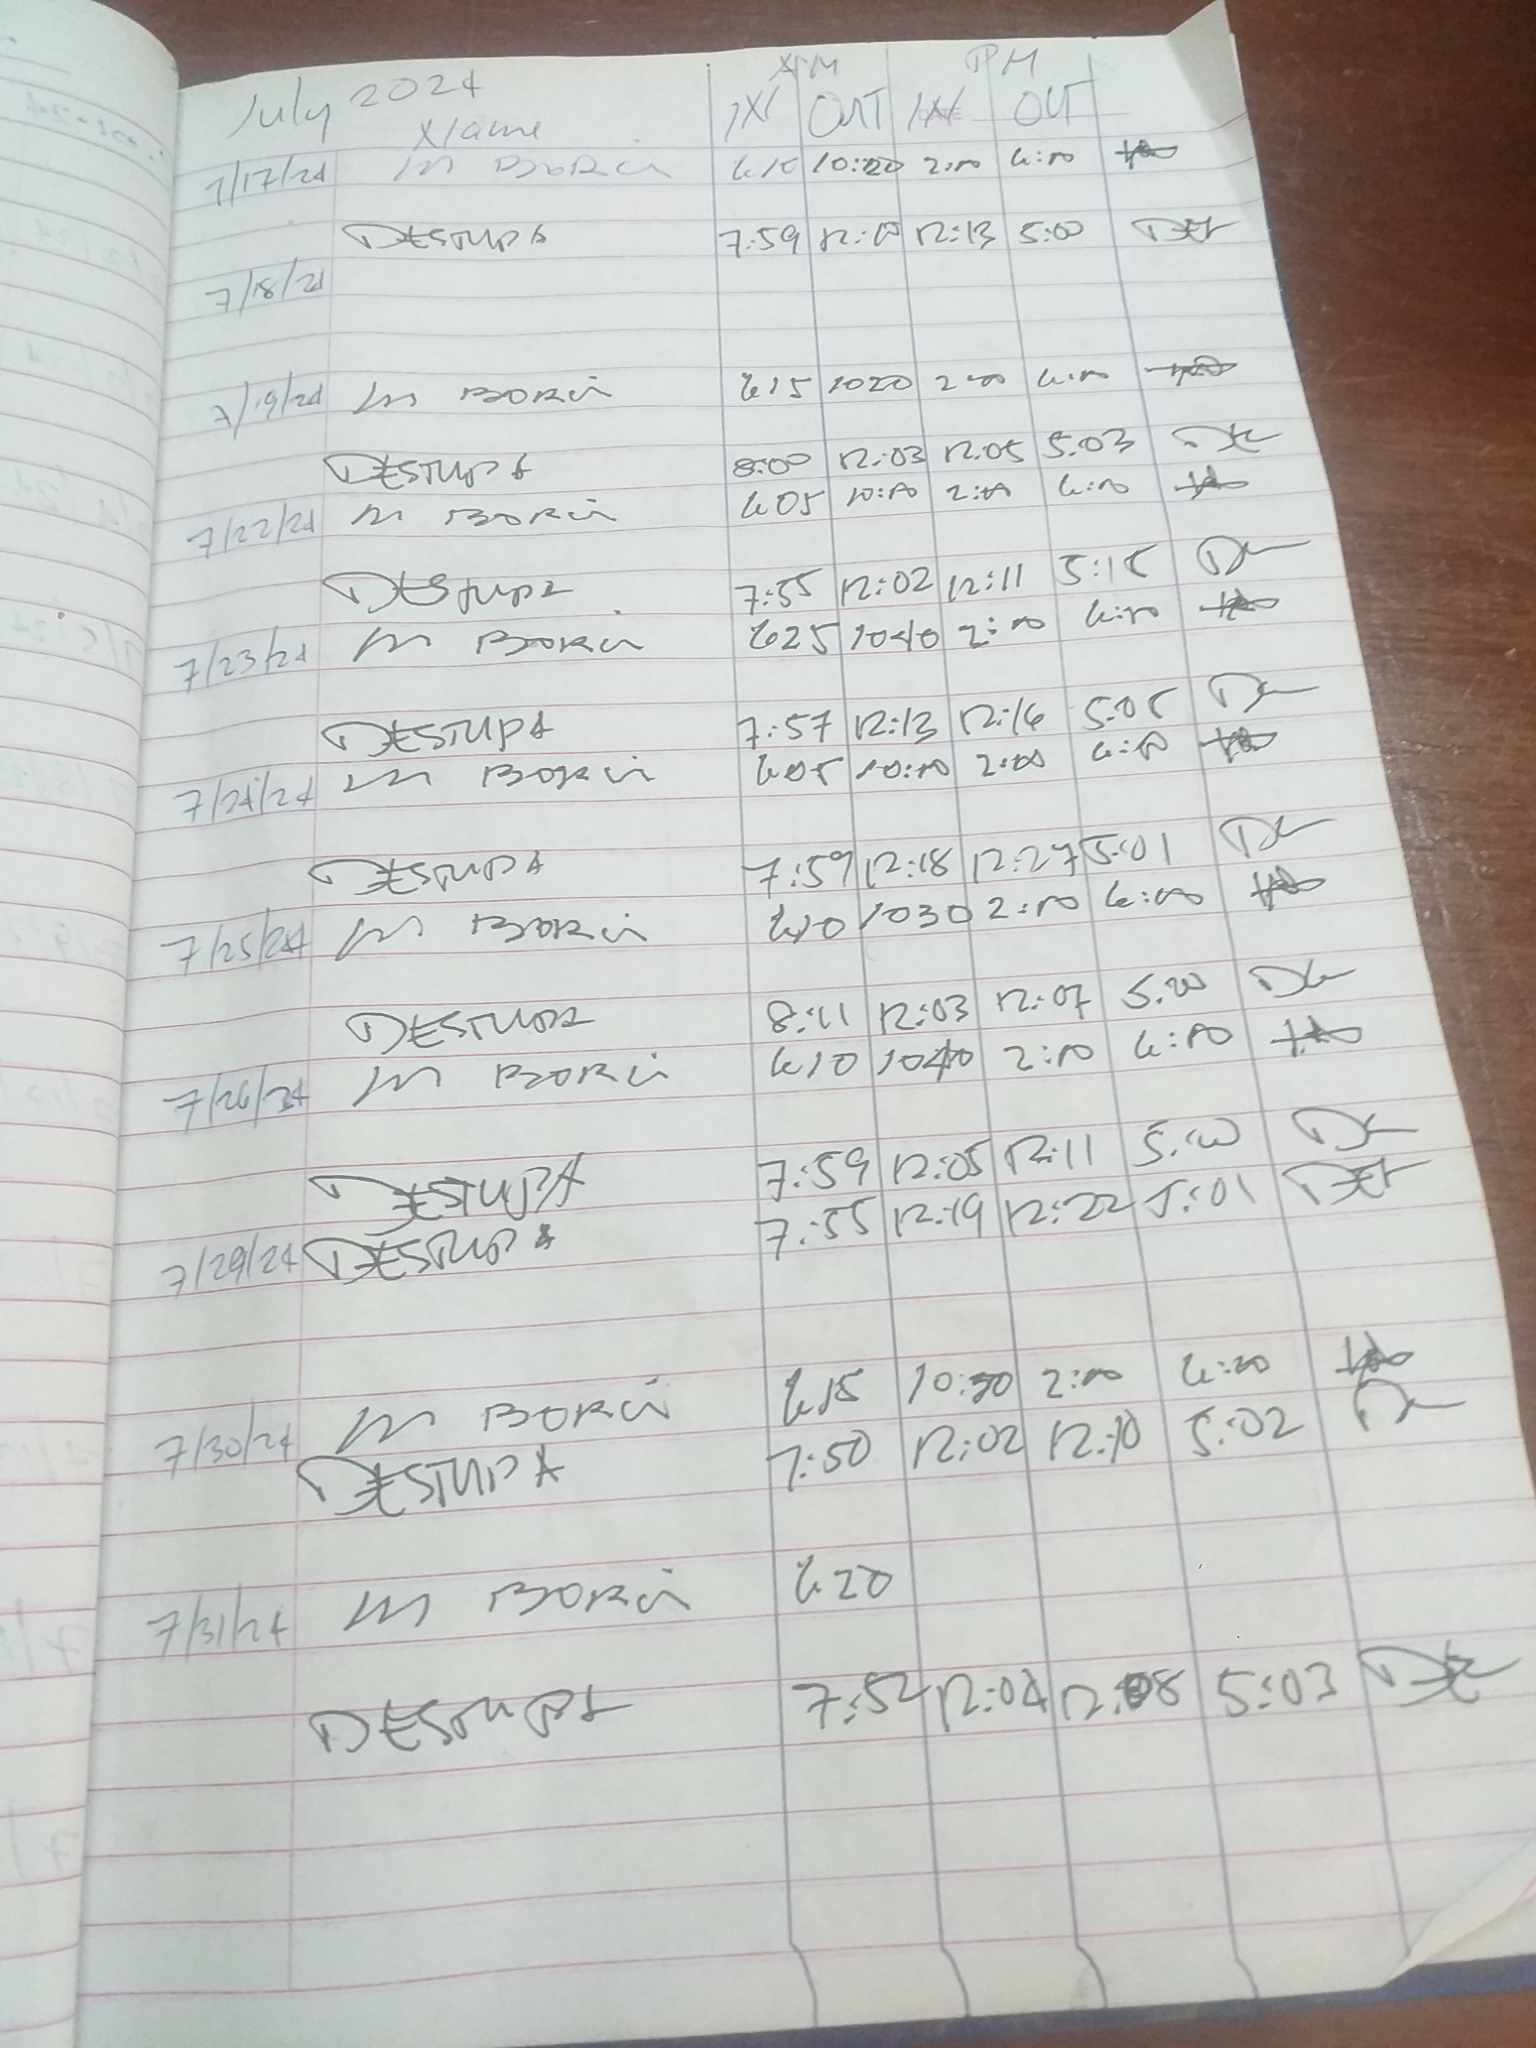 July 2024
AM PM
Name IN OUT IN OUT
7/17/24 M Borci 610 10:20 2:00 6:00
DESTUPA 7:59 12:10 12:13 5:00
7/18/24
7/19/24 M Borci 615 1020 2:00 6:00
DESTUPA 8:00 12:03 12:05 5:03
7/22/24 M Borci 605 10:00 2:00 6:00
DESTUPA 7:55 12:02 12:11 5:15
7/23/24 M Borci 625 1040 2:00 6:00
DESTUPA 7:57 12:13 12:16 5:05
7/24/24 M Borci 605 10:10 2:00 6:00
DESTUPA 7:59 12:18 12:27 5:01
7/25/24 M Borci 610 1030 2:00 6:00
DESTUPA 8:11 12:03 12:07 5:00
7/26/24 M Borci 610 1040 2:00 6:00
DESTUPA 7:59 12:05 12:11 5:00
7/29/24 DESTUPA 7:55 12:19 12:22 5:01
7/30/24 M Borci 615 10:30 2:00 6:20
DESTUPA 7:50 12:02 12:10 5:02
7/31/24 M Borci 620
DESTUPA 7:52 12:04 12:08 5:03